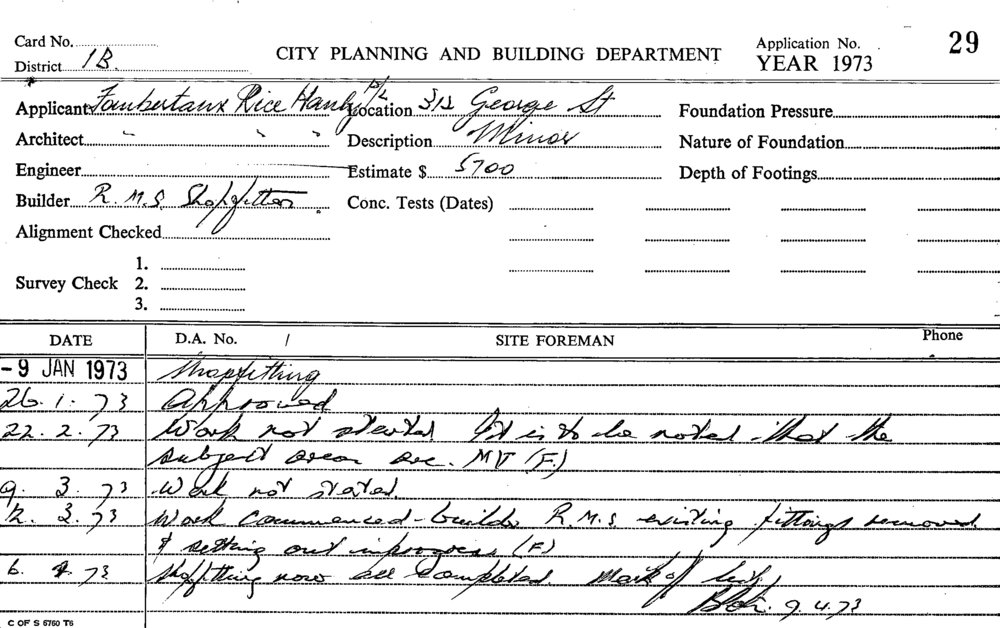 Card No. 29
District 1B.
CITY PLANNING AND BUILDING DEPARTMENT
Application No.
YEAR 1973
Applicant Rice Hanly P/L Location George St Foundation Pressure
Architect " " " Description Minor Nature of Foundation
Engineer Estimate $ 5700 Depth of Footings
Builder R.M.S. Shopfitters Conc. Tests (Dates)
Alignment Checked
1.
Survey Check 2.
3.
DATE D.A. No. / SITE FOREMAN Phone
- 9 JAN 1973 Shopfitting
26. 1. 73 Approved
22. 2. 73 Work not started It is to be noted that the
subject areas are. MT (F.)
9. 3. 73 Work not started.
12. 3. 73 Work commenced - builder R.M.S existing fittings removed
& setting out in progress (F)
6. 4. 73 Shopfitting now all completed. Mark off
9.4.73
C OF S 6760 T6